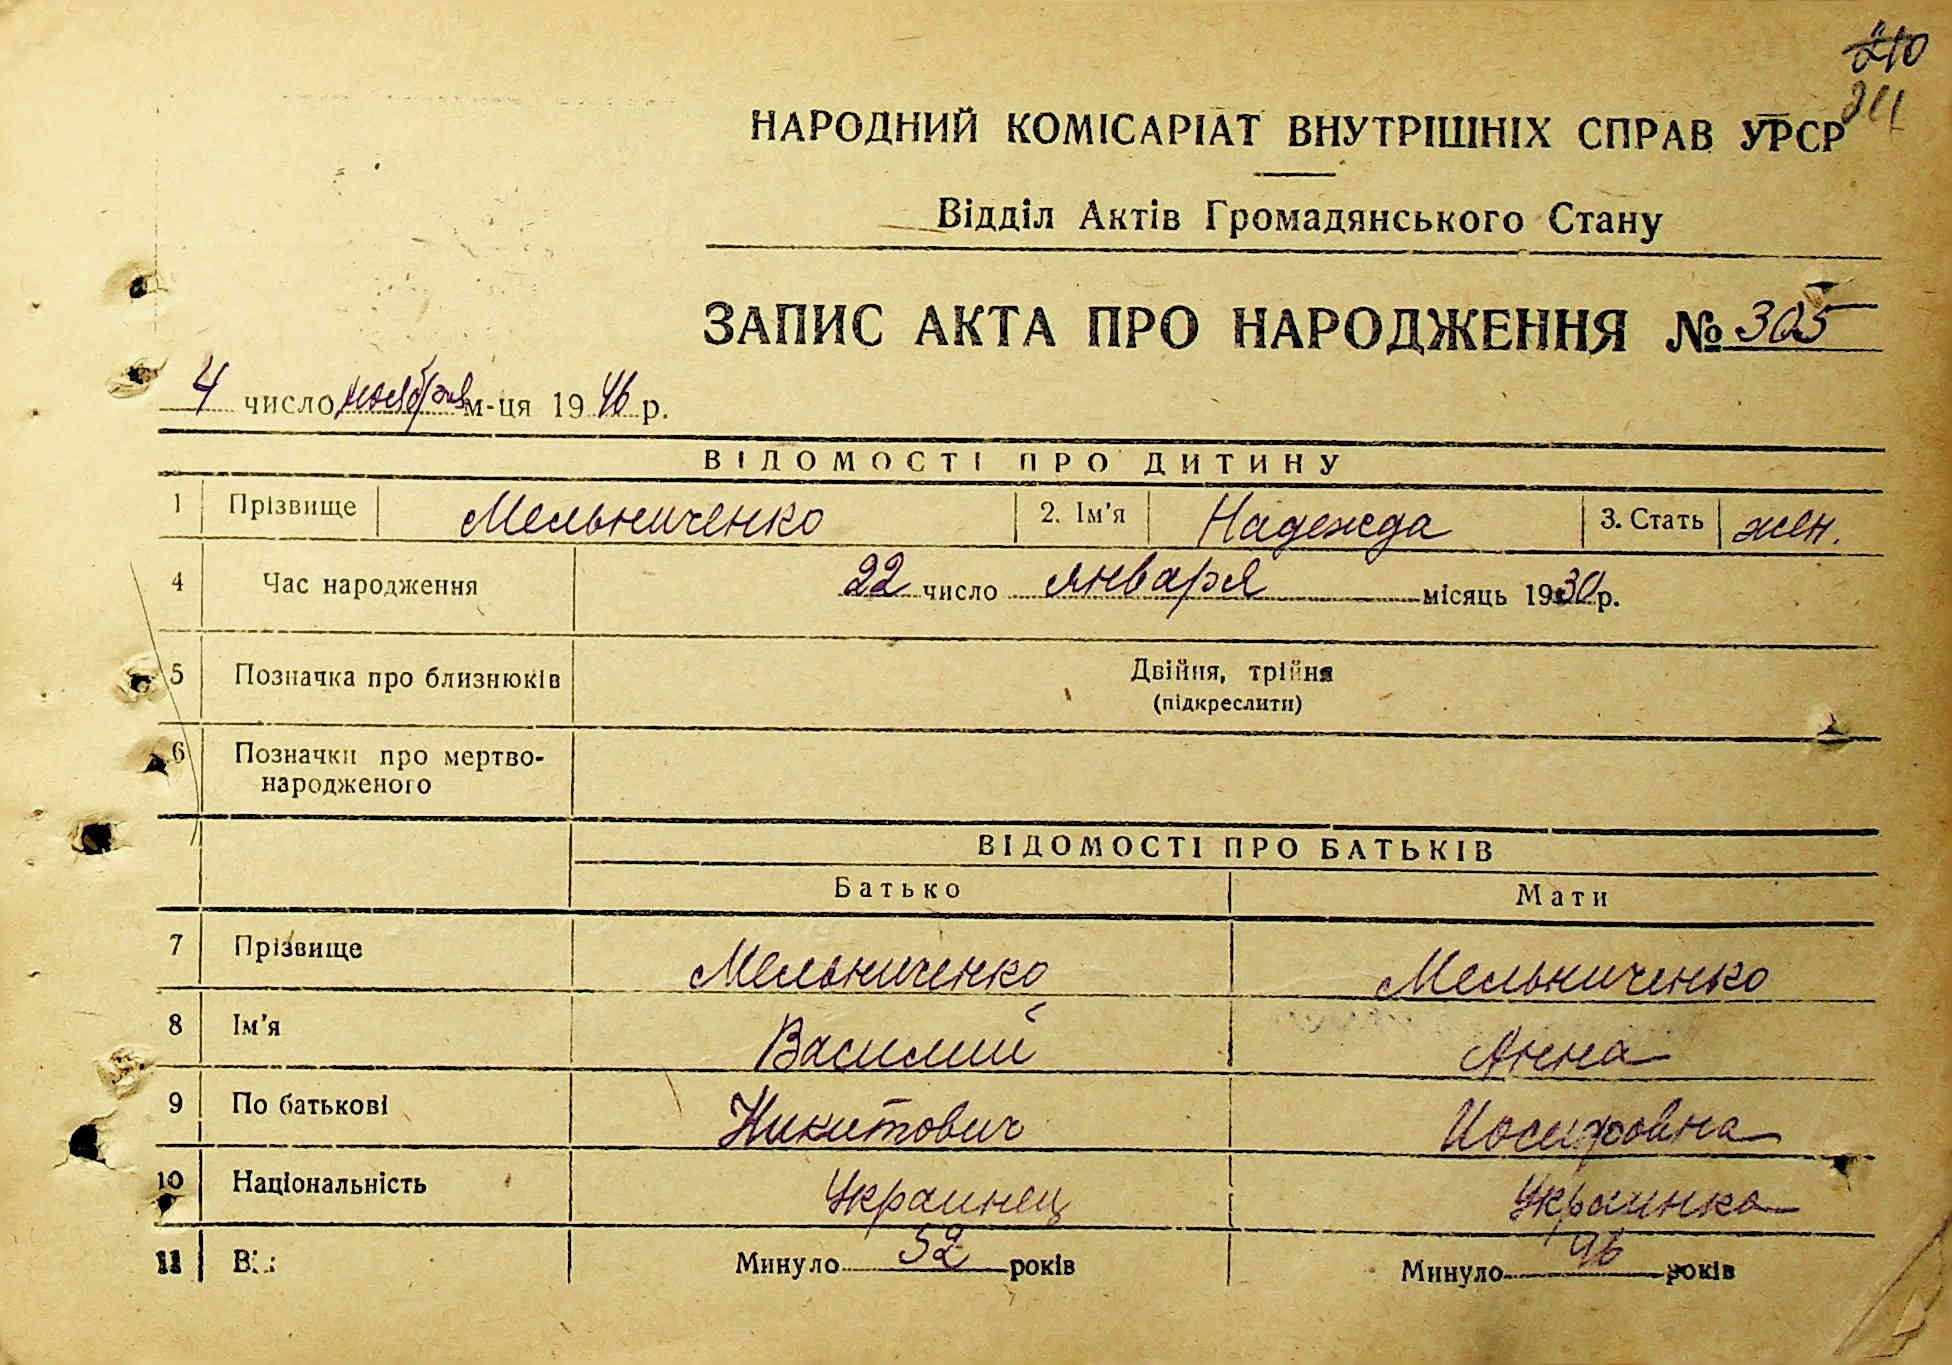 210
211
НАРОДНИЙ КОМІСАРІАТ ВНУТРІШНІХ СПРАВ УРСР
Відділ Актів Громадянського Стану
ЗАПИС АКТА ПРО НАРОДЖЕННЯ № 305
4 число ноября м-ця 1946 р.
ВІДОМОСТІ ПРО ДИТИНУ
1 Прізвище Мельниченко 2. Ім'я Надежда 3. Стать жен.
4 Час народження 22 число января місяць 1930 р.
5 Позначка про близнюків Двійня, трійня
(підкреслити)
6 Позначки про мертво-
народженого
ВІДОМОСТІ ПРО БАТЬКІВ
Батько Мати
7 Прізвище Мельниченко Мельниченко
8 Ім'я Василий Анна
9 По батькові Никитович Иосифовна
10 Національність Украинец Украинка
11 Вік Минуло 52 років Минуло 46 років